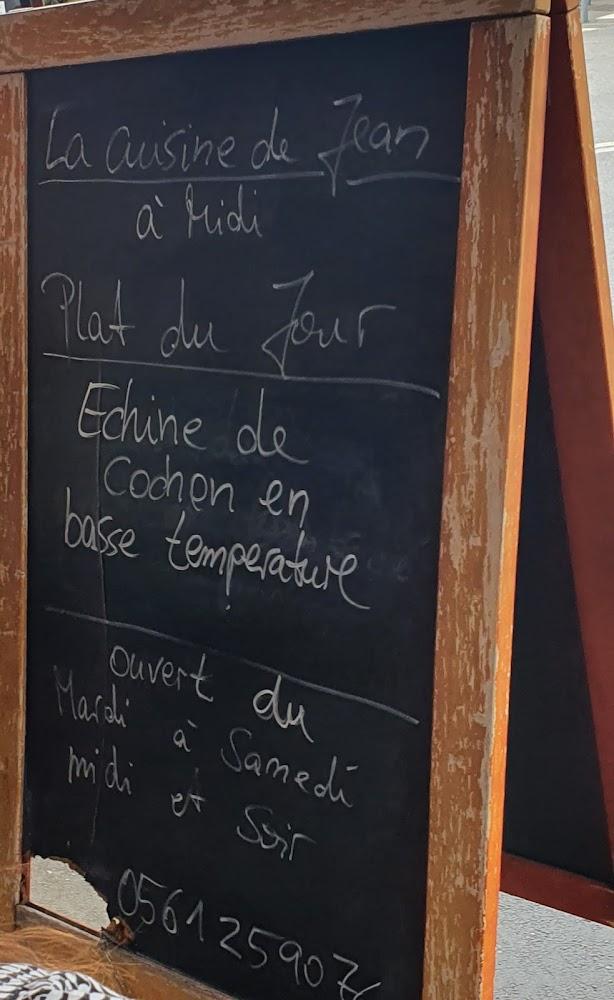 La cuisine de Jean
à Midi
Plat du Jour
Echine de
Cochon en
basse temperature
ouvert du
Mardi à Samedi
midi et Soir
0561259076